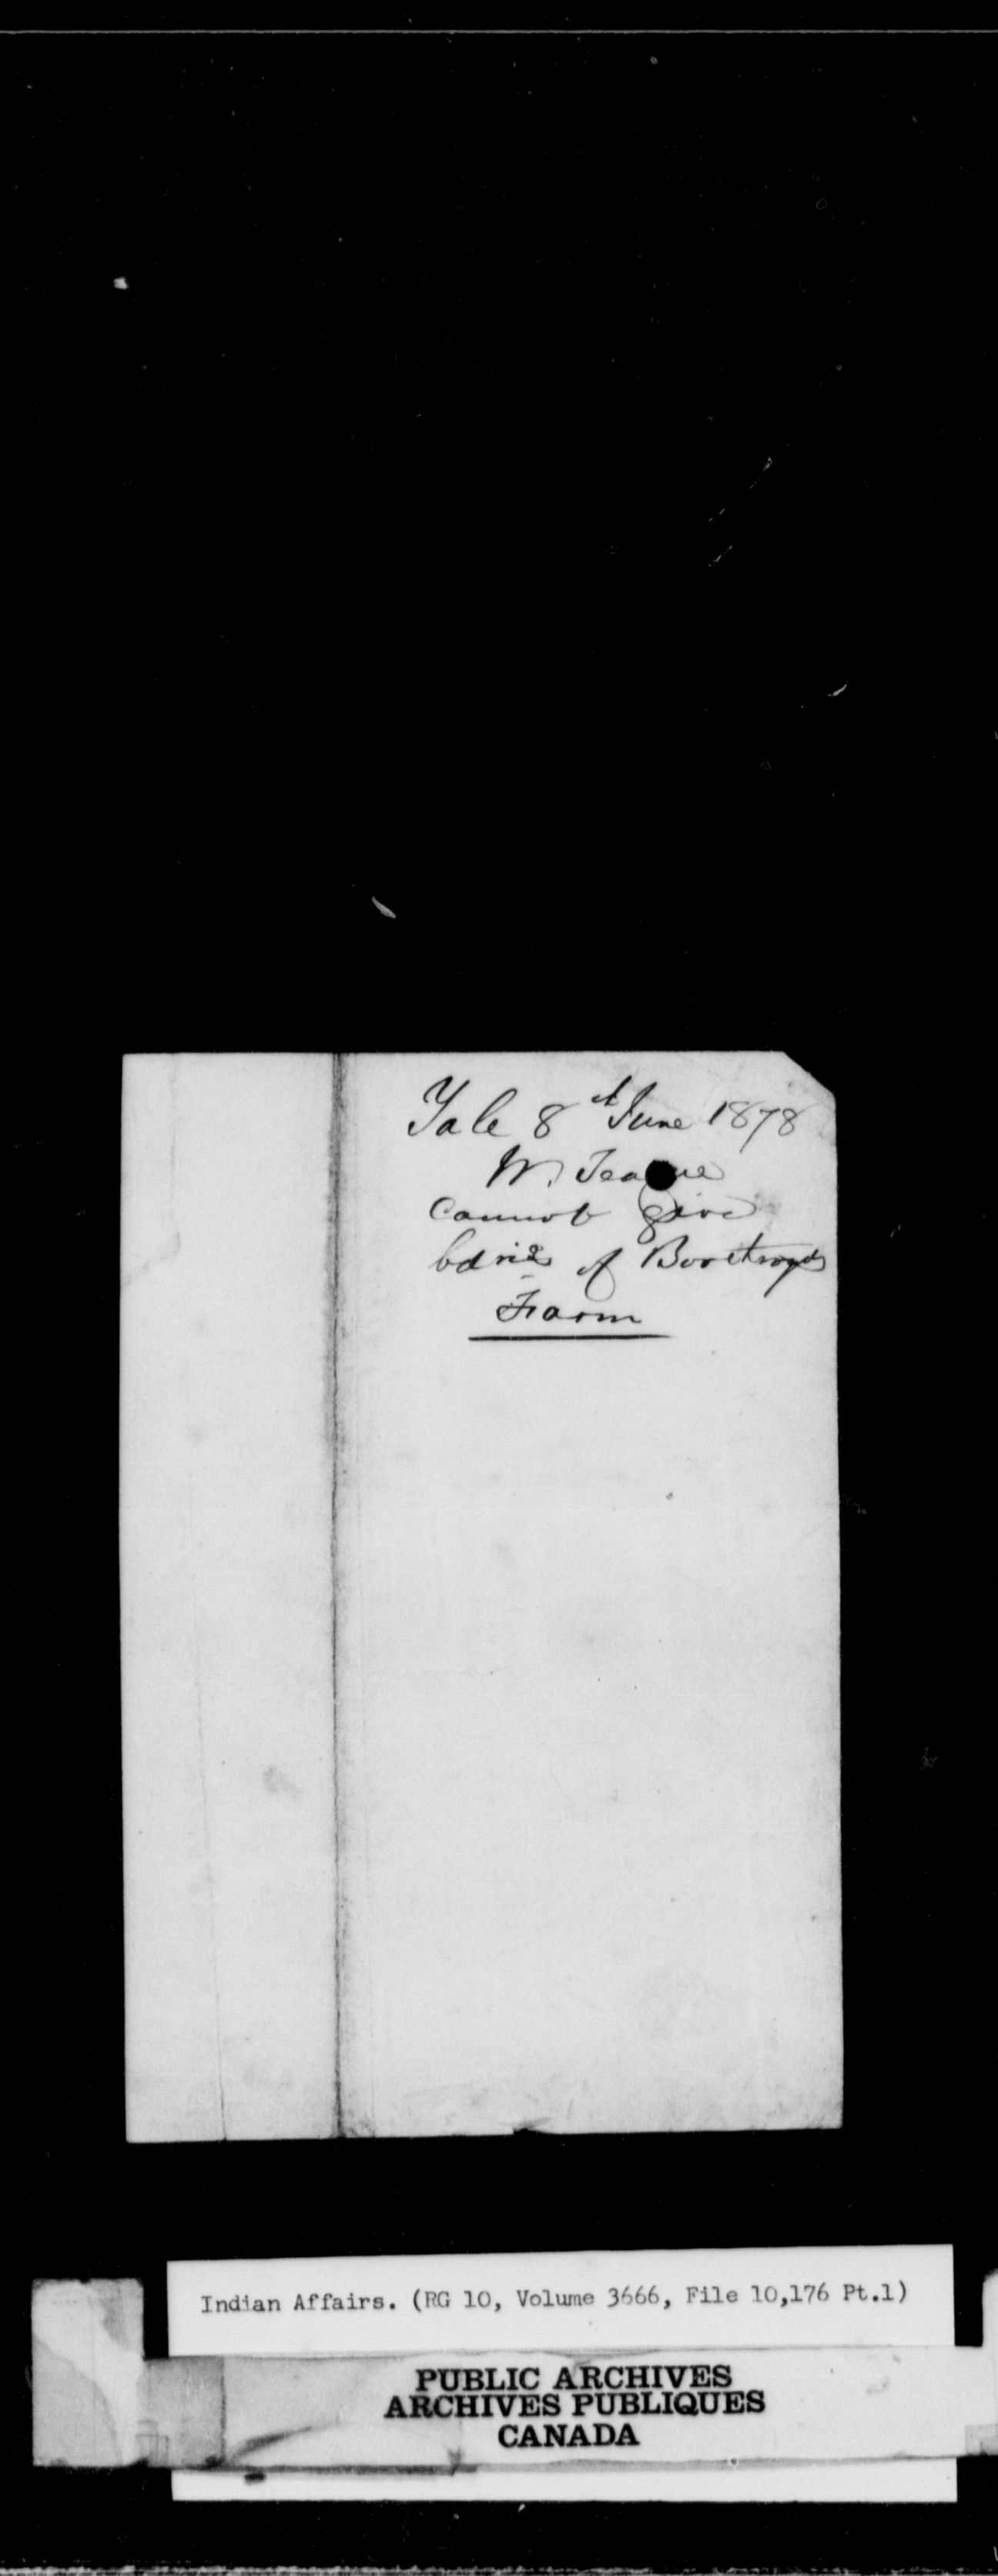 Yale 8th June 1878
W. Teague
Cannot give
bdries of Boothroyds
Farm
Indian Affairs. (RG 10, Volume 3666, File 10,176 Pt.1)
PUBLIC ARCHIVES
ARCHIVES PUBLIQUES
CANADA